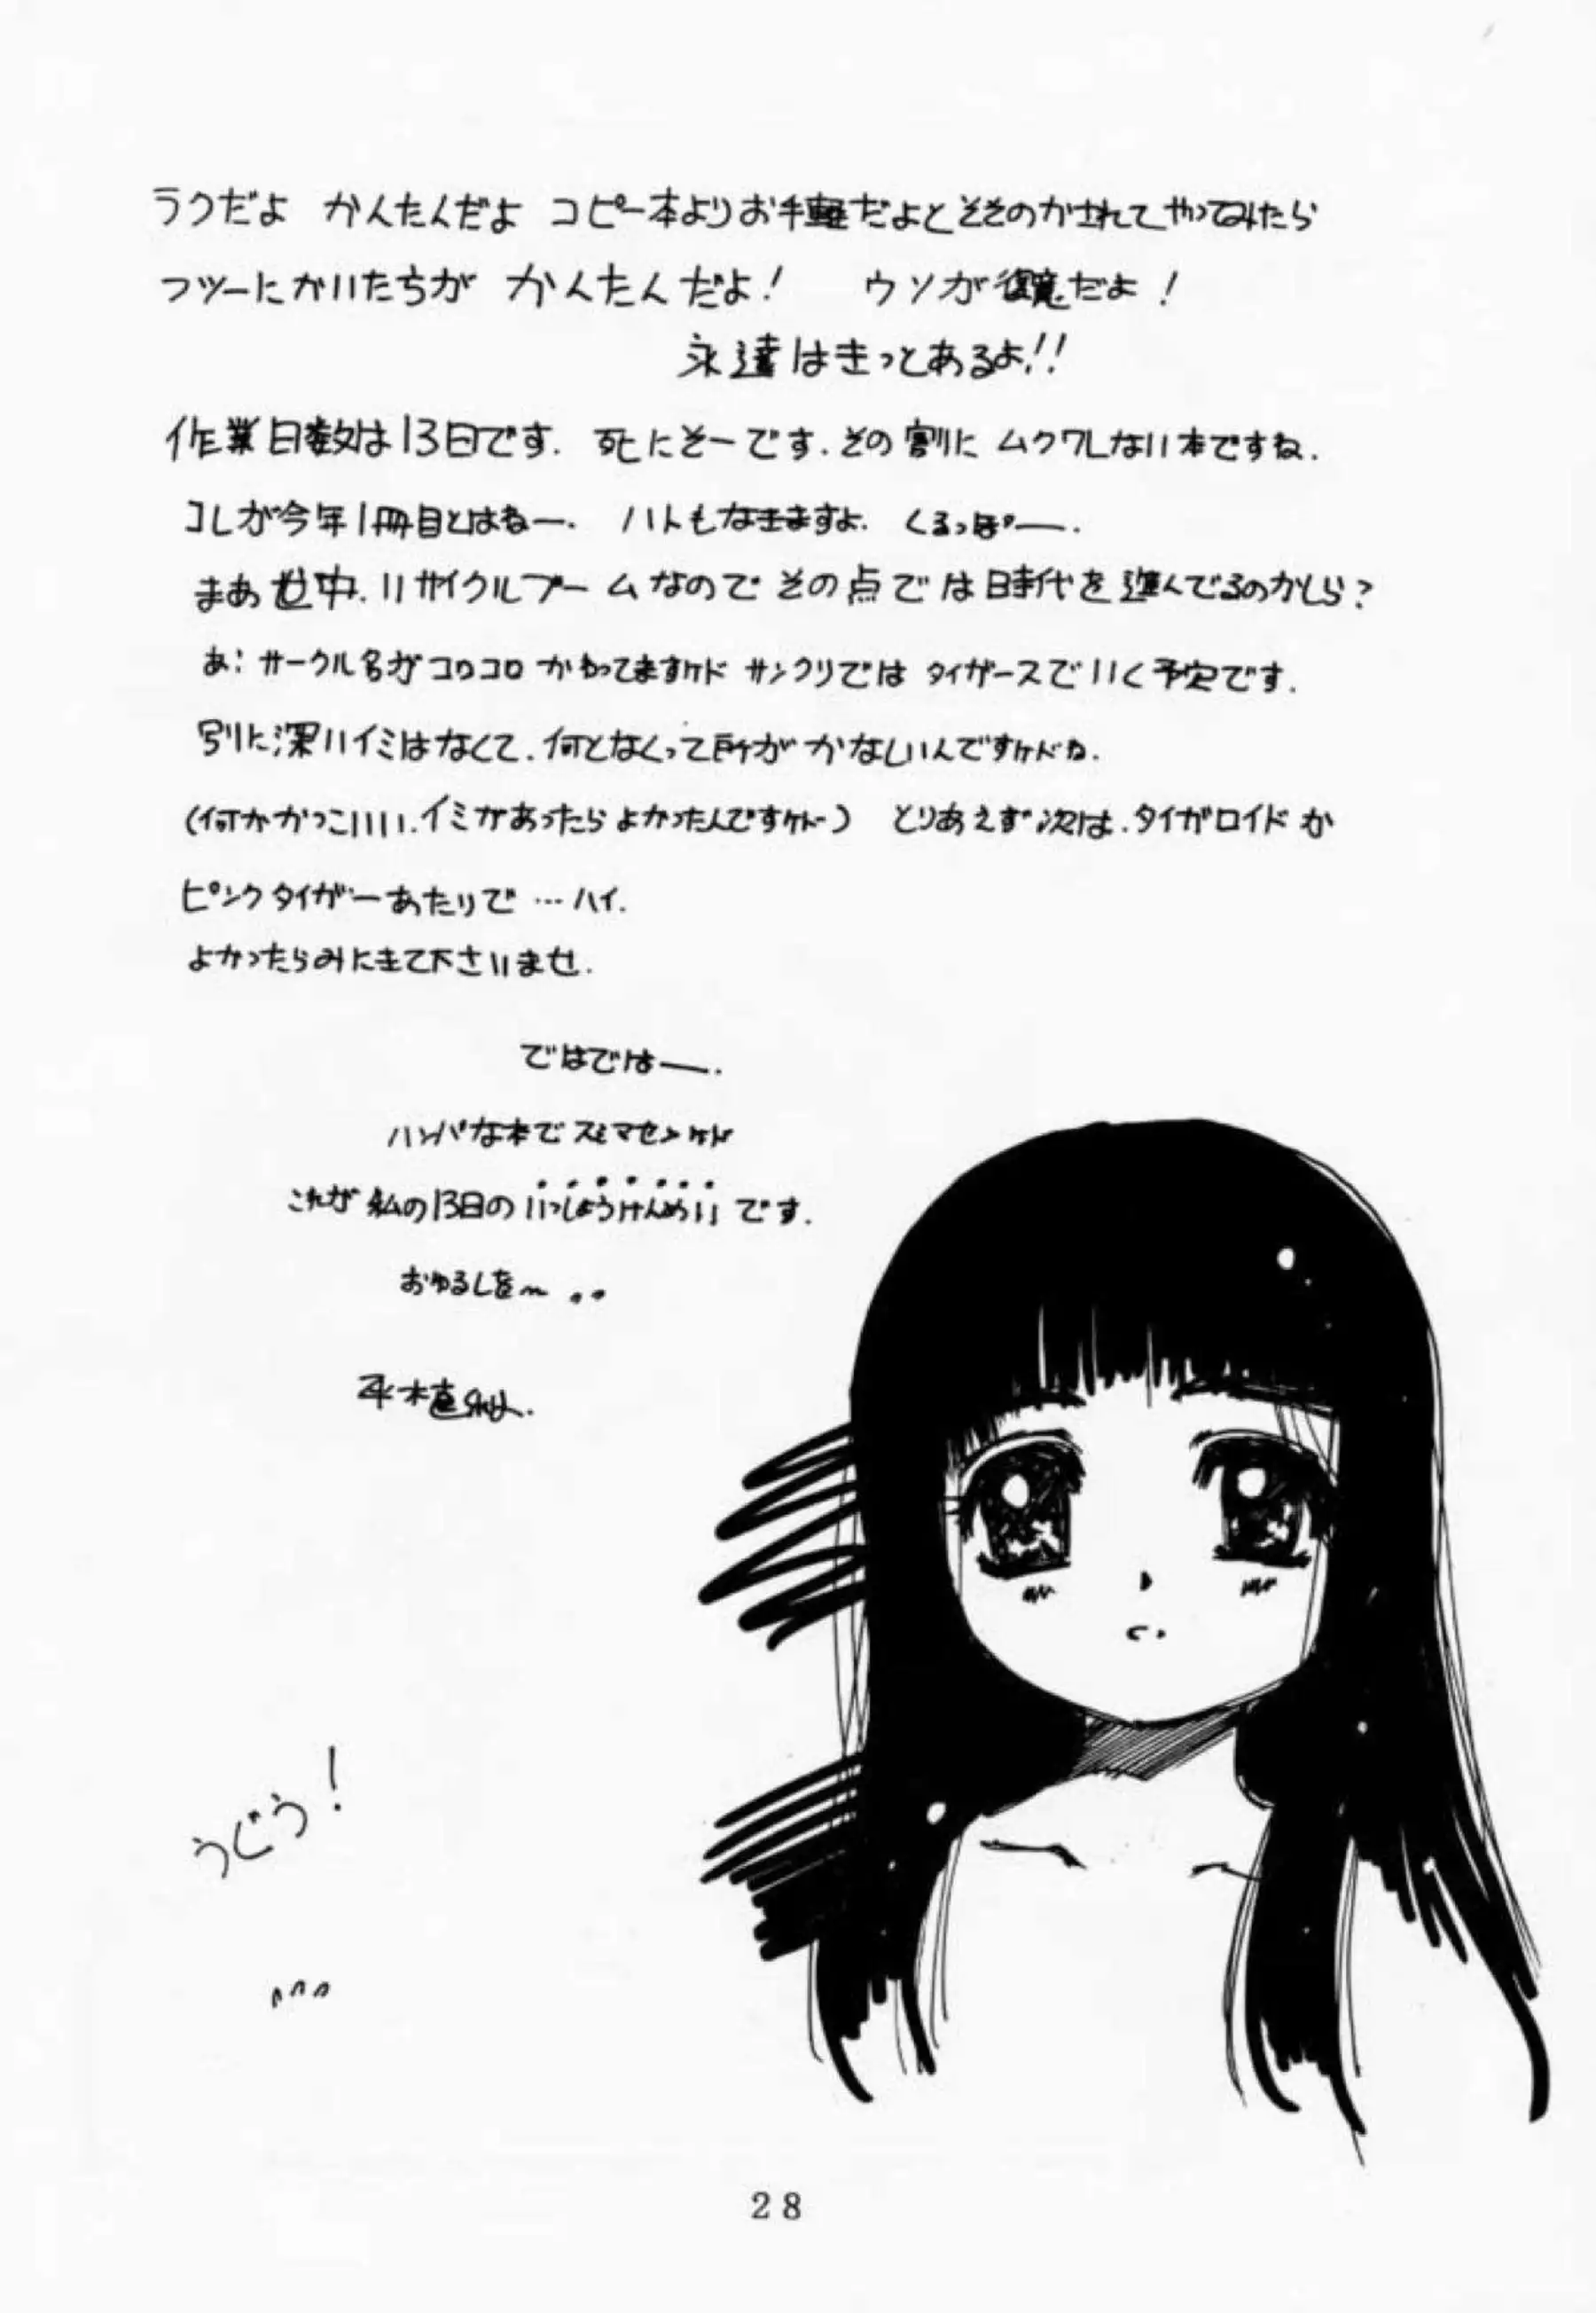 ラクだよ かんたんだよ コピー本よりお手軽だよとそそのかされてやってみたら
フツーにかいたちが かんたんだよ! ウソが だよ!
永遠はきっとあるよ!!
作業日数は13日です. 死にそーです.その割に ムクワレない本ですね.
コレが今年1冊目とはねー. ハトもなきますよ. くるっぽー.
まあ世中.リサイクルブームなので その点では時代を進んでるのかしら?
あ!サークル名がコロコロかわってますケド サンクリでは タイガースでいく予定です.
別に深いイミはなくて.何となくって所が かなしいんですケドね.
(何かかっこいい.イミがあったらよかったんですケドー) とりあえず次は.タイガロイドか
ピンクタイガーあたりで…ハイ.
よかったらみにきて下さいませ.
ではではー.
ハンパな本でスミマセンケド
これが私の13日のいっしょうけんめいです.
おゆるしを〜..
平木直利.
うぐぅ!
28